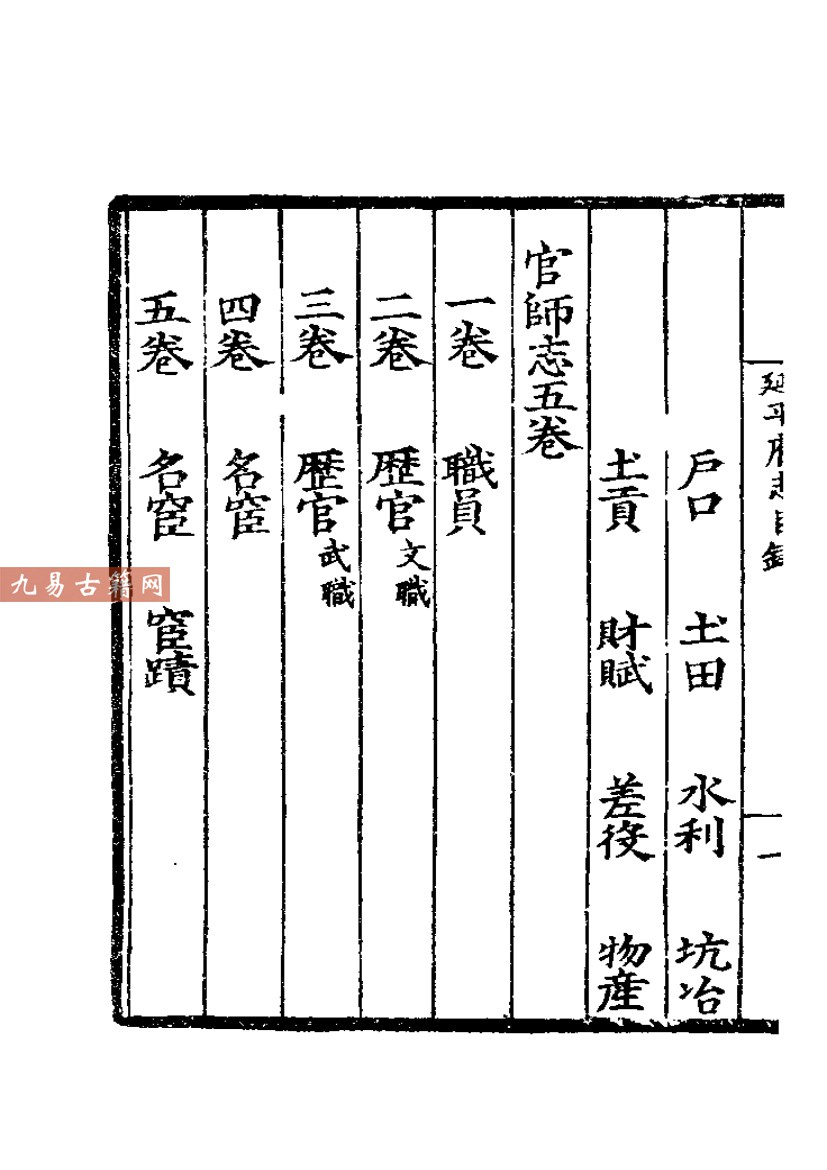 延平府志目錄
一
戶口　土田　水利　坑冶
土貢　財賦　差役　物產
官師志五卷
一卷　職員
二卷　歷官文職
三卷　歷官武職
四卷　名宦
五卷　名宦　宦蹟
九易古籍网